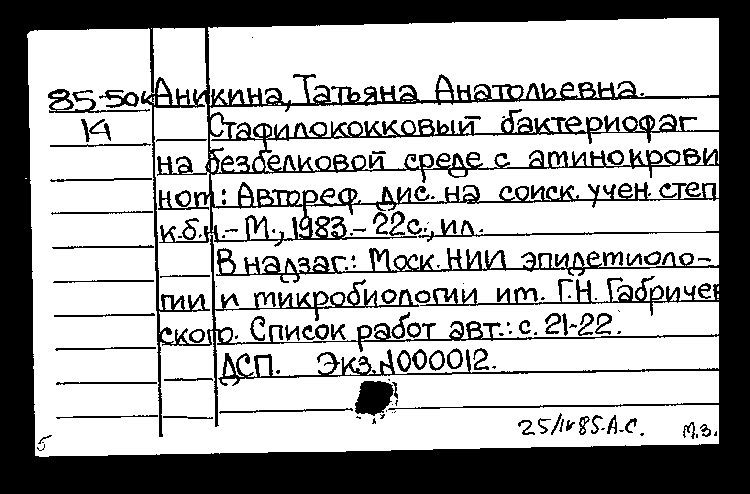 85-50к Аникина, Татьяна Анатольевна.
14 Стафилококковый бактериофаг
на безбелковой среде с аминокрови
ном: Автореф. дис. на соиск. учен. степ
к.б.н. - М., 1983. - 22с., ил.
В надзаг.: Моск. НИИ эпидемиоло-
гии и микробиологии им. Г.Н. Габричев
ского. Список работ авт.: с. 21-22.
ДСП. Экз. N000012.
25/IV 85. А.С. М.З.
5